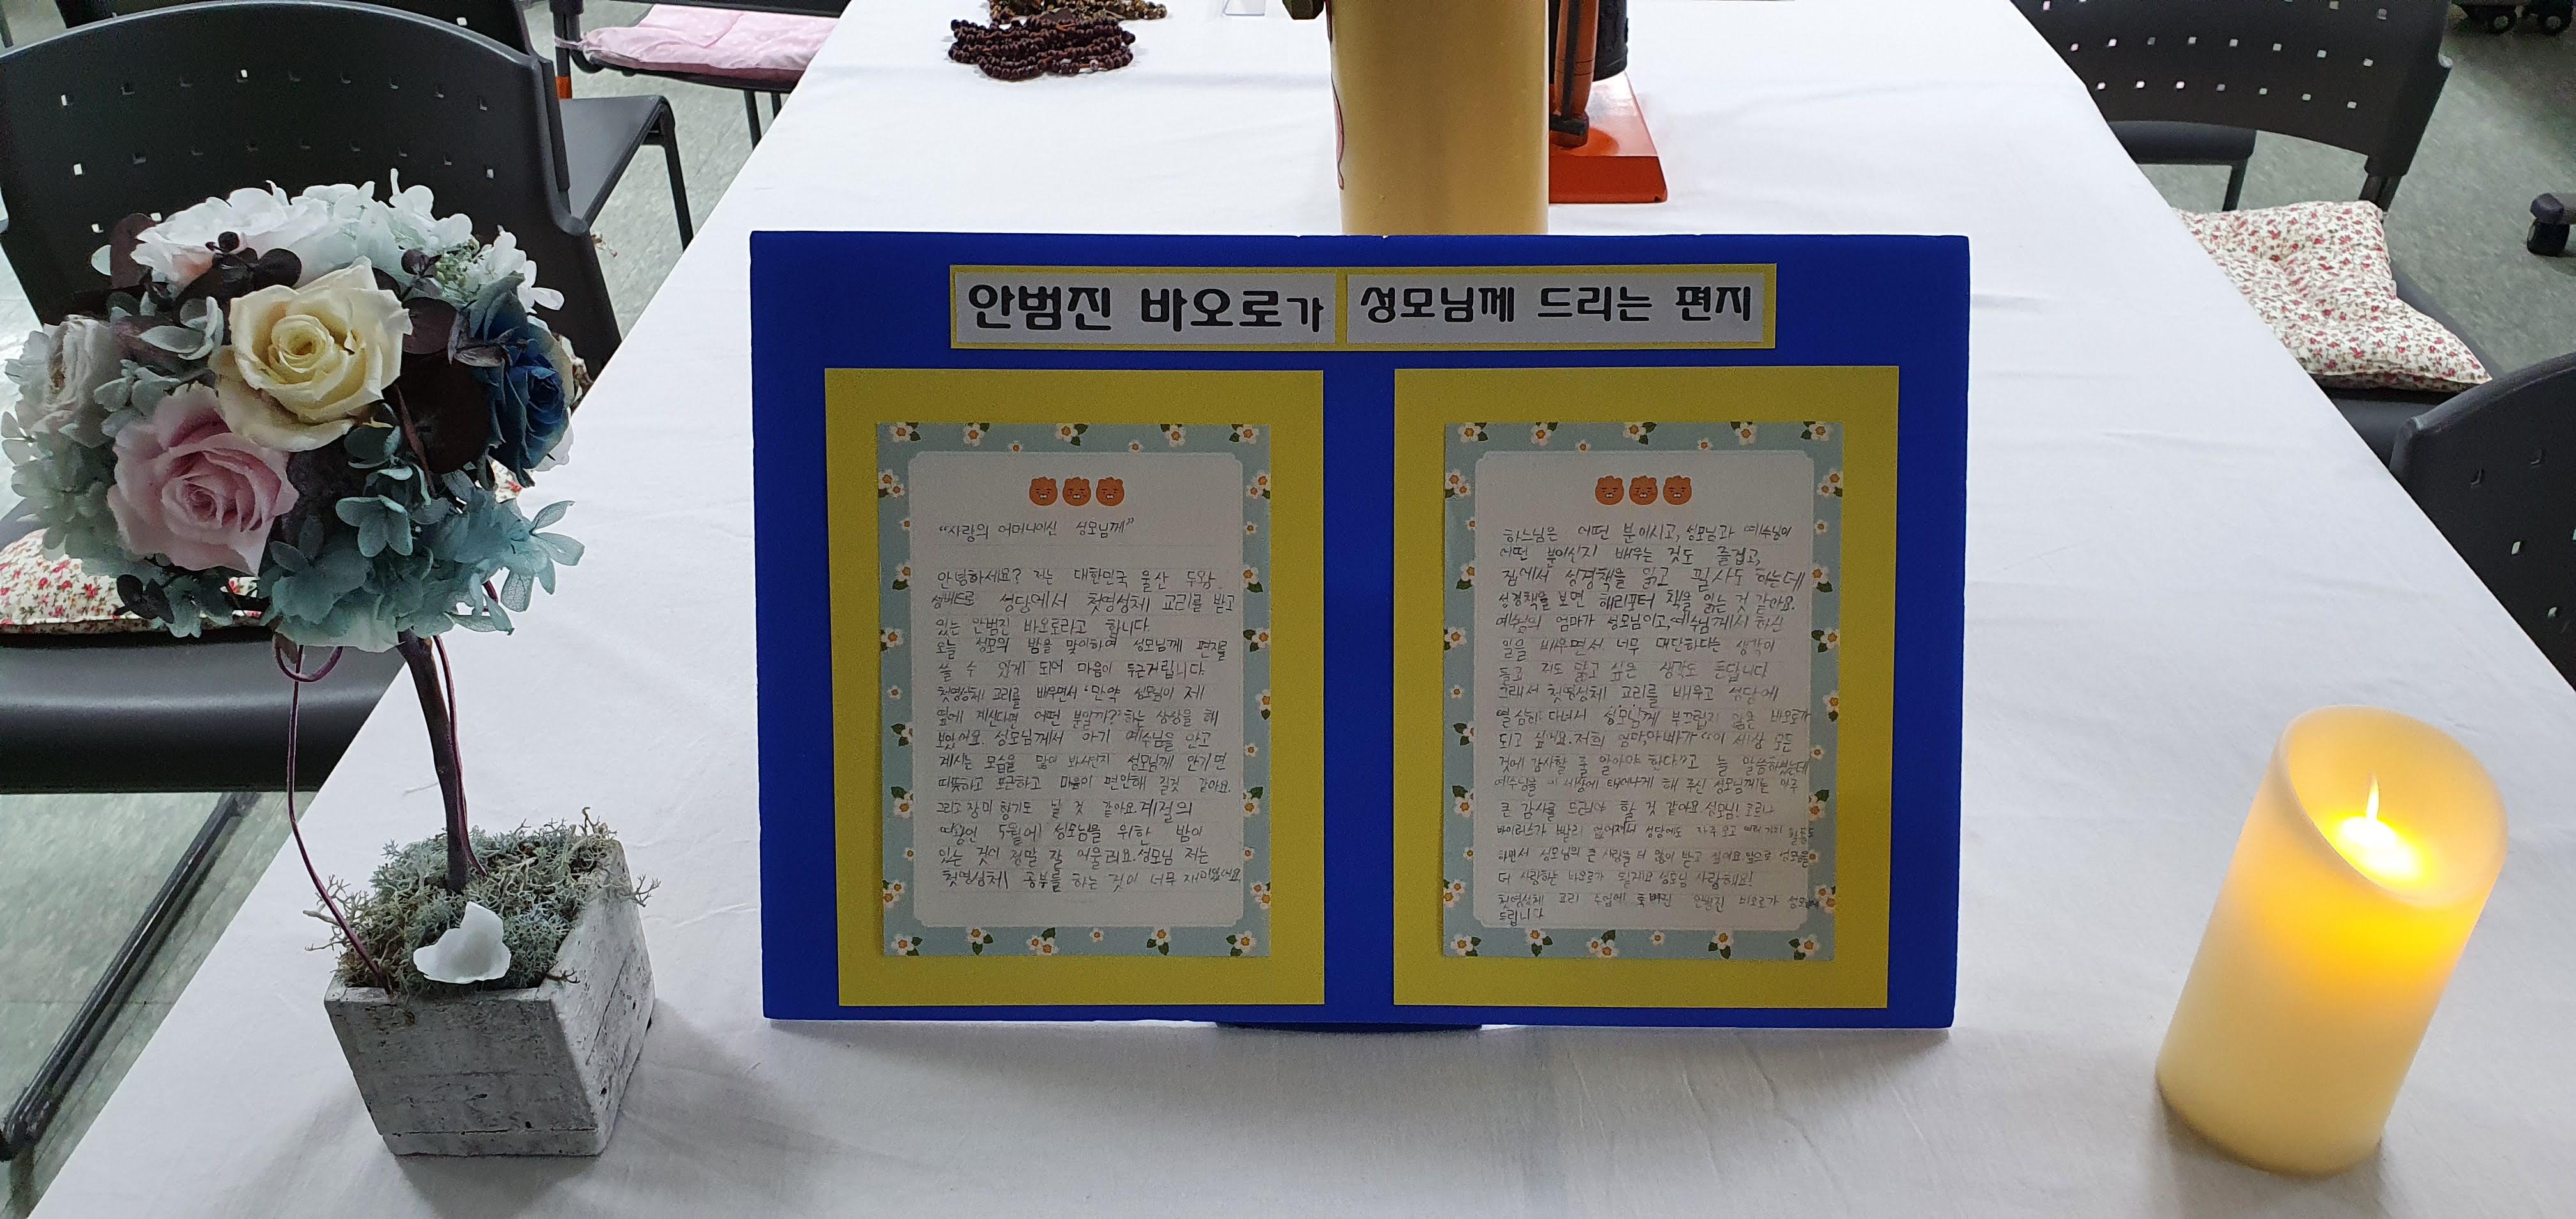 안범진 바오로가 성모님께 드리는 편지
"사랑의 어머니이신 성모님께"
안녕하세요? 저는 대한민국 울산 두왕
성당에서 첫영성체 교리를 받고
있는 안범진 바오로라고 합니다.
오늘 성모의 밤을 맞이하여 성모님께 편지를
쓸 수 있게 되어 마음이 두근거립니다.
첫영성체 교리를 배우면서 '만약 성모님이 제
옆에 계신다면 어떤 분일까?' 하는 상상을 해
보았어요. 성모님께서 아기 예수님을 안고
계시는 모습을 많이 봐서인지 성모님께 안기면
따뜻하고 포근하고 마음이 편안해 질것 같아요.
그리고 장미 향기도 날 것 같아요. 계절의
여왕인 5월에 성모님을 위한 밤이
있는 것이 정말 잘 어울려요. 성모님 저는
첫영성체 공부를 하는 것이 너무 재미있어요.
하느님은 어떤 분이시고, 성모님과 예수님이
어떤 분이신지 배우는 것도 즐겁고,
집에서 성경책을 읽고 필사도 하는데
성경책을 보면 해리포터 책을 읽는 것 같아요.
예수님의 엄마가 성모님이고, 예수님께서 하신
일을 배우면서 너무 대단하다는 생각이
들고 저도 닮고 싶은 생각도 든답니다
그래서 첫영성체 교리를 배우고 성당에
열심히 다녀서 성모님께 부끄럽지 않은 바오로가
되고 싶어요. 저희 엄마, 아빠가 "이 세상 모든
것에 감사할 줄 알아야 한다"고 늘 말씀하셨는데
예수님을 이 세상에 태어나게 해 주신 성모님께는 아주
큰 감사를 드려야 할 것 같아요. 성모님! 코로나
바이러스가 빨리 없어져서 성당에도 자주 오고 여러가지 활동도
하면서 성모님의 큰 사랑을 더 많이 받고 싶어요. 앞으로 성모님을
더 사랑하는 바오로가 될게요 성모님 사랑해요!
첫영성체 교리 수업에 푹 빠진 안범진 바오로가 성모님께
드립니다